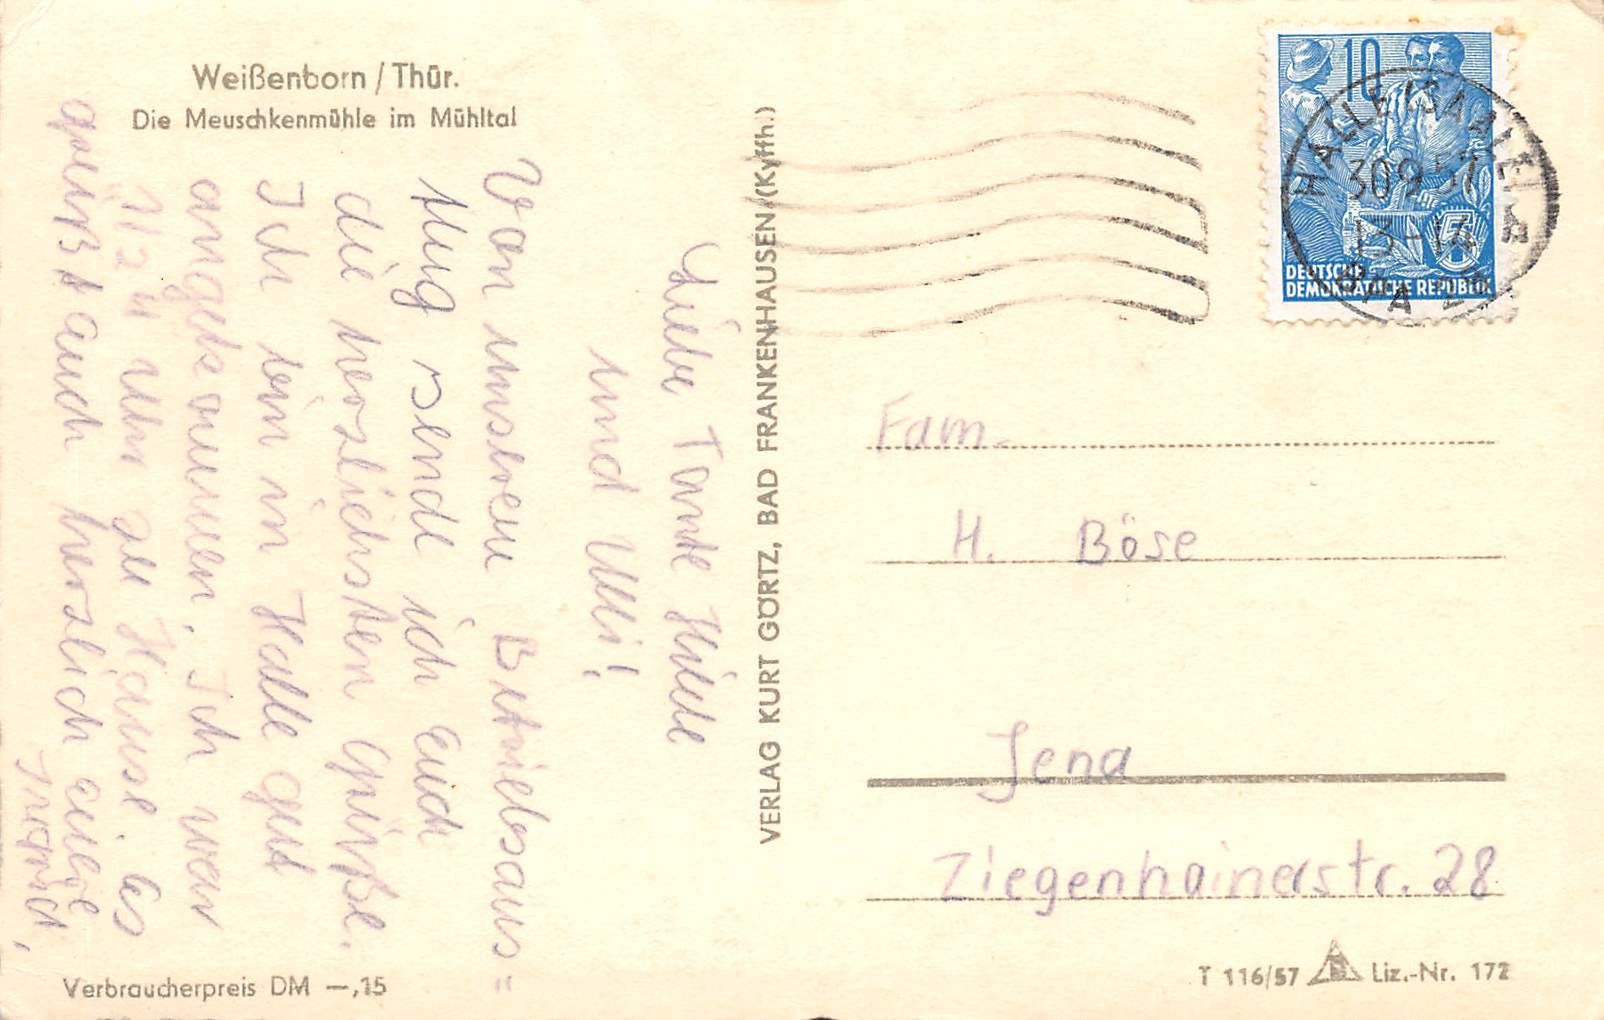 Weißenborn / Thür.
Die Meuschkenmühle im Mühltal
Liebe Tante Hilde
und Ulli!
Von unserem Betriebsaus=
flug sende ich euch
die herzlichsten Grüße.
Ich bin in Halle gut
angekommen. Ich war
11 Uhr zu Hause. Es
grüßt auch herzlich eure
Ingrid,
VERLAG KURT GÖRTZ, BAD FRANKENHAUSEN (Kyffh.)
10
HALLE (SAALE)
30.9.57
13-14
DEUTSCHE
DEMOKRATISCHE REPUBLIK
Fam.
H. Böse
Jena
Ziegenhainerstr. 28
Verbraucherpreis DM —,15
T 116/57 Liz.-Nr. 172